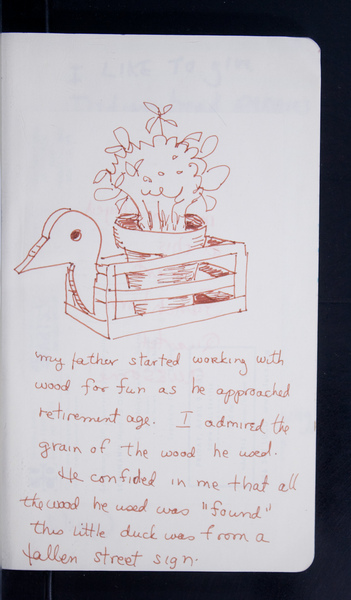 my father started working with
wood for fun as he approached
retirement age. I admired the
grain of the wood he used.
He confided in me that all
the wood he used was "found"
this little duck was from a
fallen street sign.